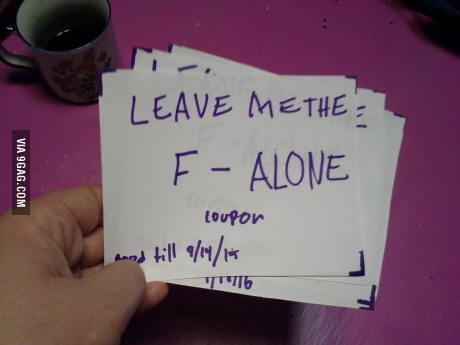 LEAVE ME THE
F - ALONE
coupon
good till 9/14/15
VIA 9GAG.COM